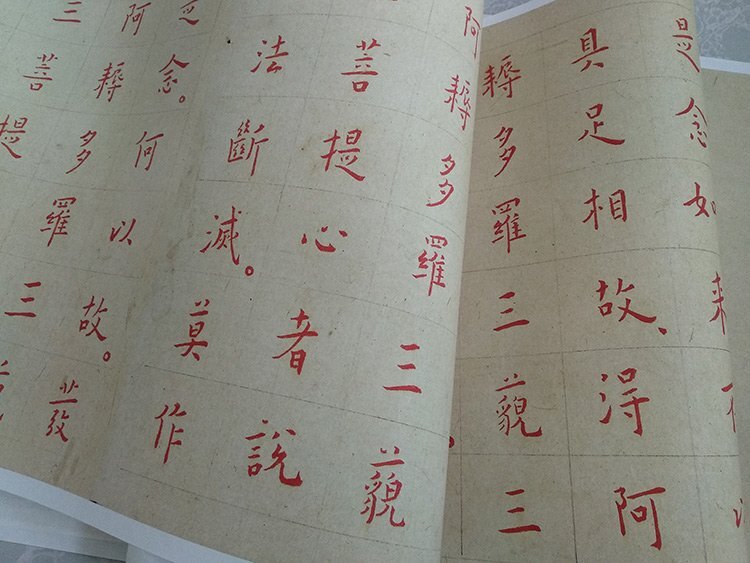 是念如來不
具足相故、得阿
耨多羅三藐三
阿耨多羅三藐
菩提心者說
法斷滅。莫作
是念。何以故。發
阿耨多羅三
三菩提